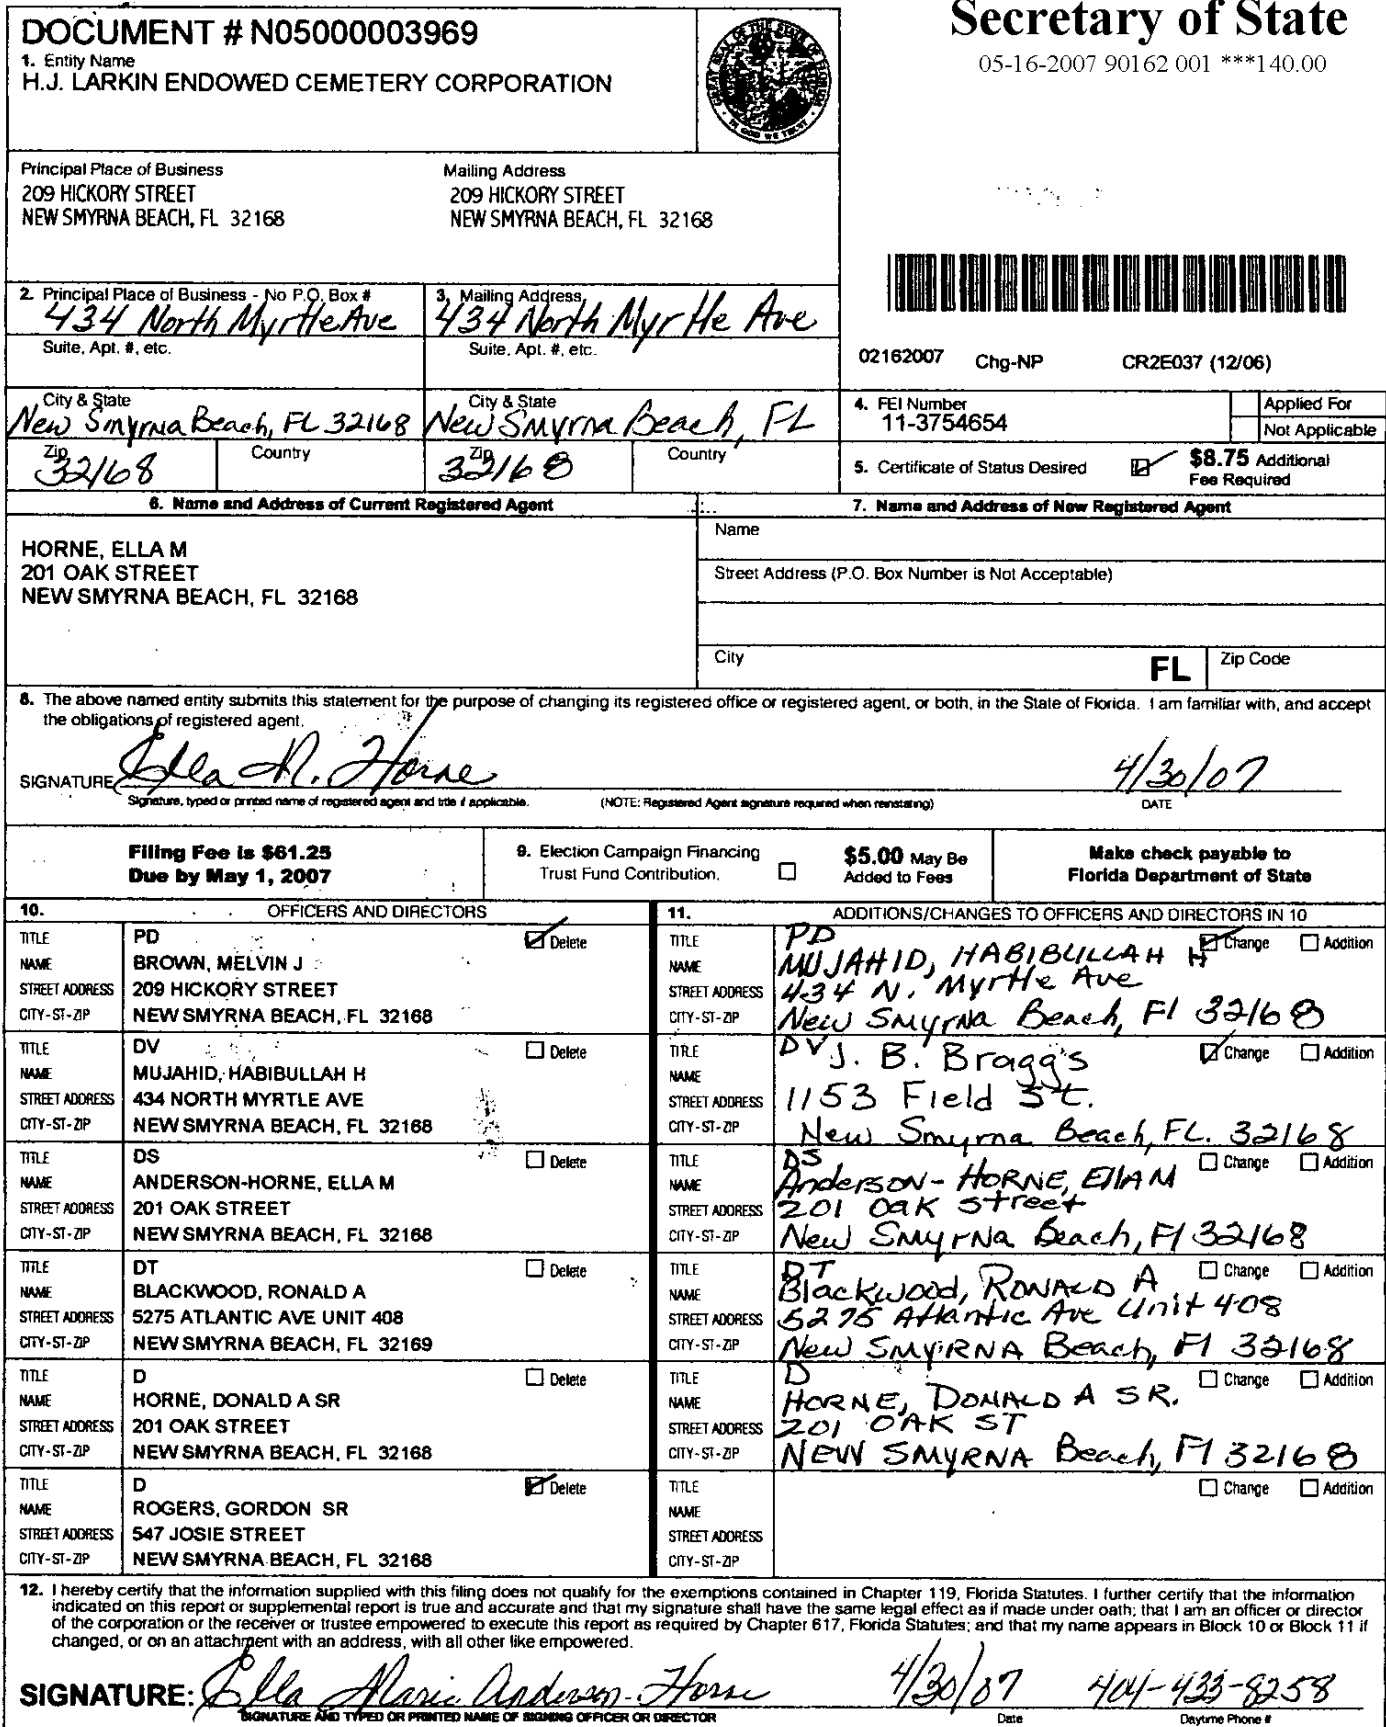 Secretary of State
05-16-2007 90162 001 ***140.00
DOCUMENT # N05000003969
1. Entity Name
H.J. LARKIN ENDOWED CEMETERY CORPORATION
Principal Place of Business
209 HICKORY STREET
NEW SMYRNA BEACH, FL 32168
Mailing Address
209 HICKORY STREET
NEW SMYRNA BEACH, FL 32168
2. Principal Place of Business - No P.O. Box #
434 North Myrtle Ave
Suite, Apt. #, etc.
City & State
New Smyrna Beach, FL 32168
Zip
32168
Country
3. Mailing Address
434 North Myrtle Ave
Suite, Apt. #, etc.
City & State
New Smyrna Beach, FL
Zip
32168
Country
02162007 Chg-NP CR2E037 (12/06)
4. FEI Number
11-3754654
Applied For
Not Applicable
5. Certificate of Status Desired
$8.75 Additional
Fee Required
6. Name and Address of Current Registered Agent
HORNE, ELLA M
201 OAK STREET
NEW SMYRNA BEACH, FL 32168
7. Name and Address of New Registered Agent
Name
Street Address (P.O. Box Number is Not Acceptable)
City
FL
Zip Code
8. The above named entity submits this statement for the purpose of changing its registered office or registered agent, or both, in the State of Florida. I am familiar with, and accept
the obligations of registered agent.
SIGNATURE Ella M. Horne 4/30/07
Signature, typed or printed name of registered agent and title if applicable. (NOTE: Registered Agent signature required when reinstating) DATE
Filing Fee is $61.25
Due by May 1, 2007
9. Election Campaign Financing
Trust Fund Contribution.
$5.00 May Be
Added to Fees
Make check payable to
Florida Department of State
10. OFFICERS AND DIRECTORS
TITLE PD Delete
NAME BROWN, MELVIN J
STREET ADDRESS 209 HICKORY STREET
CITY-ST-ZIP NEW SMYRNA BEACH, FL 32168
TITLE DV Delete
NAME MUJAHID, HABIBULLAH H
STREET ADDRESS 434 NORTH MYRTLE AVE
CITY-ST-ZIP NEW SMYRNA BEACH, FL 32168
TITLE DS Delete
NAME ANDERSON-HORNE, ELLA M
STREET ADDRESS 201 OAK STREET
CITY-ST-ZIP NEW SMYRNA BEACH, FL 32168
TITLE DT Delete
NAME BLACKWOOD, RONALD A
STREET ADDRESS 5275 ATLANTIC AVE UNIT 408
CITY-ST-ZIP NEW SMYRNA BEACH, FL 32169
TITLE D Delete
NAME HORNE, DONALD A SR
STREET ADDRESS 201 OAK STREET
CITY-ST-ZIP NEW SMYRNA BEACH, FL 32168
TITLE D Delete
NAME ROGERS, GORDON SR
STREET ADDRESS 547 JOSIE STREET
CITY-ST-ZIP NEW SMYRNA BEACH, FL 32168
11. ADDITIONS/CHANGES TO OFFICERS AND DIRECTORS IN 10
TITLE PD Change Addition
NAME MUJAHID, HABIBULLAH H
STREET ADDRESS 434 N. Myrtle Ave
CITY-ST-ZIP New Smyrna Beach, Fl 32168
TITLE DV Change Addition
NAME J. B. Bragg's
STREET ADDRESS 1153 Field St.
CITY-ST-ZIP New Smyrna Beach, FL. 32168
TITLE DS Change Addition
NAME Anderson-HORNE, Ella M
STREET ADDRESS 201 Oak Street
CITY-ST-ZIP New Smyrna Beach, Fl 32168
TITLE DT Change Addition
NAME Blackwood, RONALD A
STREET ADDRESS 5275 Atlantic Ave Unit 408
CITY-ST-ZIP New SMYRNA Beach, Fl 32168
TITLE D Change Addition
NAME HORNE, DONALD A SR.
STREET ADDRESS 201 OAK ST
CITY-ST-ZIP NEW SMYRNA Beach, Fl 32168
TITLE Change Addition
NAME
STREET ADDRESS
CITY-ST-ZIP
12. I hereby certify that the information supplied with this filing does not qualify for the exemptions contained in Chapter 119, Florida Statutes. I further certify that the information
indicated on this report or supplemental report is true and accurate and that my signature shall have the same legal effect as if made under oath; that I am an officer or director
of the corporation or the receiver or trustee empowered to execute this report as required by Chapter 617, Florida Statutes; and that my name appears in Block 10 or Block 11 if
changed, or on an attachment with an address, with all other like empowered.
SIGNATURE: Ella Marie Anderson-Horne 4/30/07 404-433-8258
SIGNATURE AND TYPED OR PRINTED NAME OF SIGNING OFFICER OR DIRECTOR Date Daytime Phone #